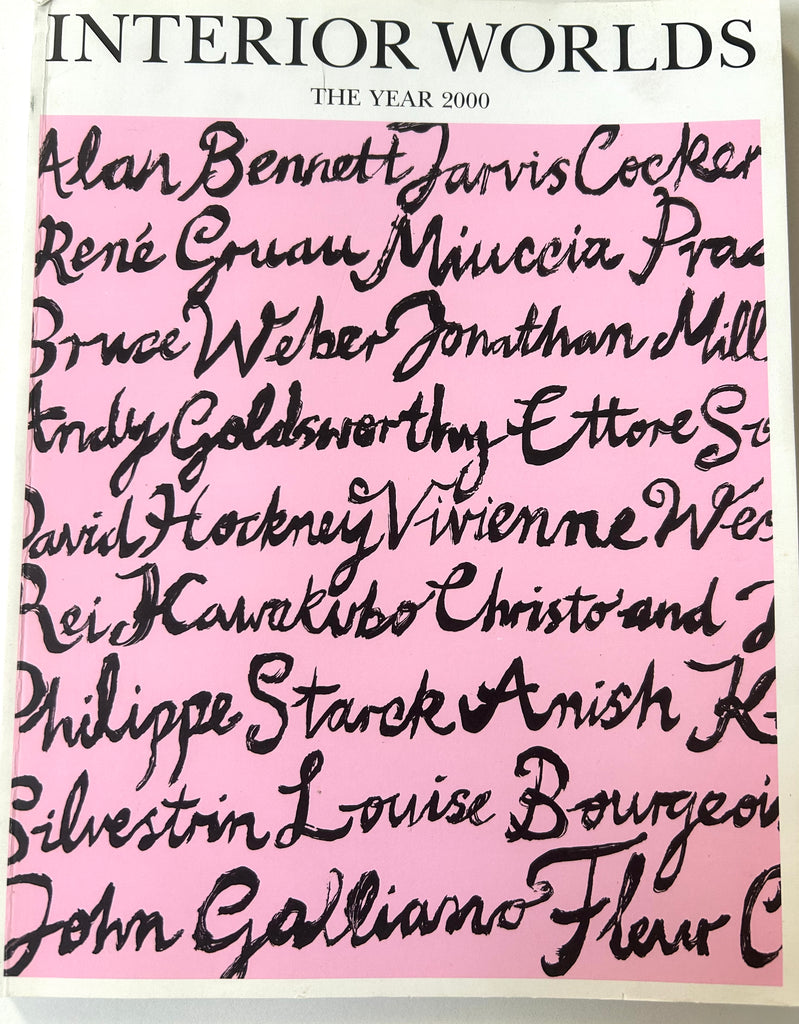 INTERIOR WORLDS
THE YEAR 2000
Alan Bennett Jarvis Cocker
René Gruau Miuccia Prad
Bruce Weber Jonathan Mill
Andy Goldsworthy Ettore So
David Hockney Vivienne Wes
Rei Kawakubo Christo and J
Philippe Starck Anish K
Silvestrin Louise Bourgeoi
John Galliano Fleur C